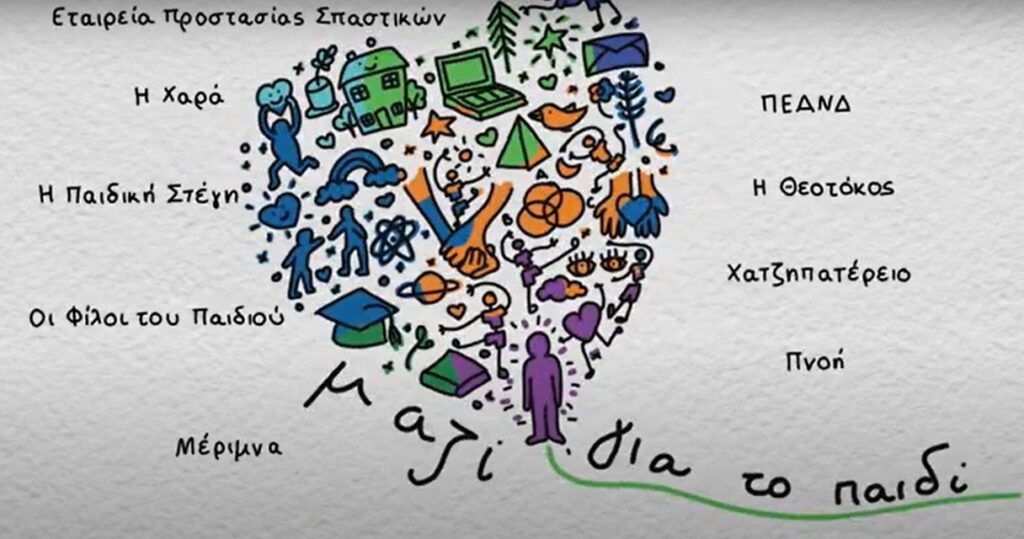 Εταιρεία Προστασίας Σπαστικών
Η Χαρά
Η Παιδική Στέγη
Οι Φίλοι του Παιδιού
Μέριμνα
ΠΕΑΝΔ
Η Θεοτόκος
Χατζηπατέρειο
Πνοή
Μαζί για το παιδί